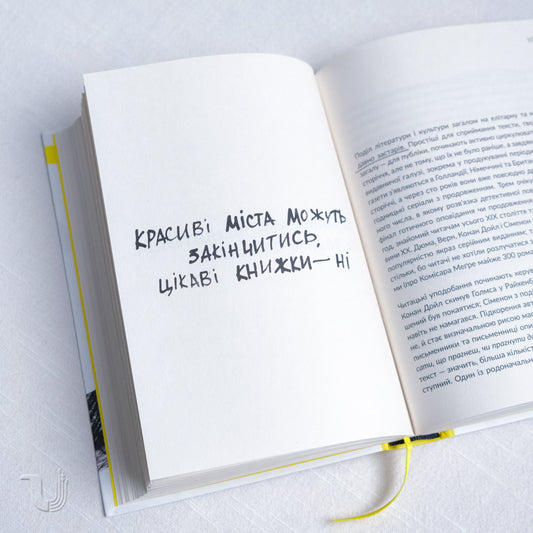 КРАСИВІ МІСТА МОЖУТЬ
ЗАКІНЦИТИСЬ,
ЦІКАВІ КНИЖКИ — НІ
Поділ літератури і культури загалом на елітарну та
давно застарів. Простіші для сприймання тексти,
загалу — для публіки, починають активно
сторіччя, але не тому, що їх не було раніше, а
видавничої галузі, зокрема у продукуванні
газети з'являються в Голландії, Німеччині та
сторіччі, а через сто років вони вже повсюдно
годницькі серіали з продовженням. Трем
ного числа, в якому розв'язка детективної
фінал готичного оповідання чи продовження
год, знайомий читачам усього XIX століття
вини XX. Дюма, Верн, Конан Дойл і Сіменон
популярністю якраз серійним виданням;
стільки, бо читачі не хотіли розлучатися з
ни (про Комісара Мегре майже 300
Читацькі уподобання починають
Конан Дойл скинув Голмса у
шений був покаятися; Сіменон з
навіть не намагався. Підкорення
не, й стає визначальною рисою
письменники та письменниці
сати, що прагнеш, чи прагнути
текст — значить, більша
ступний. Один із